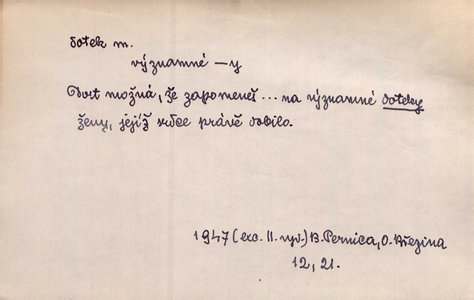 dotek m.
významné —y
Dost možná, že zapomeneš... na významné doteky
ženy, jejíž srdce právě dobilo.
1947 (exc. II. vyd.) B. Pernica, O. Březina
12, 21.